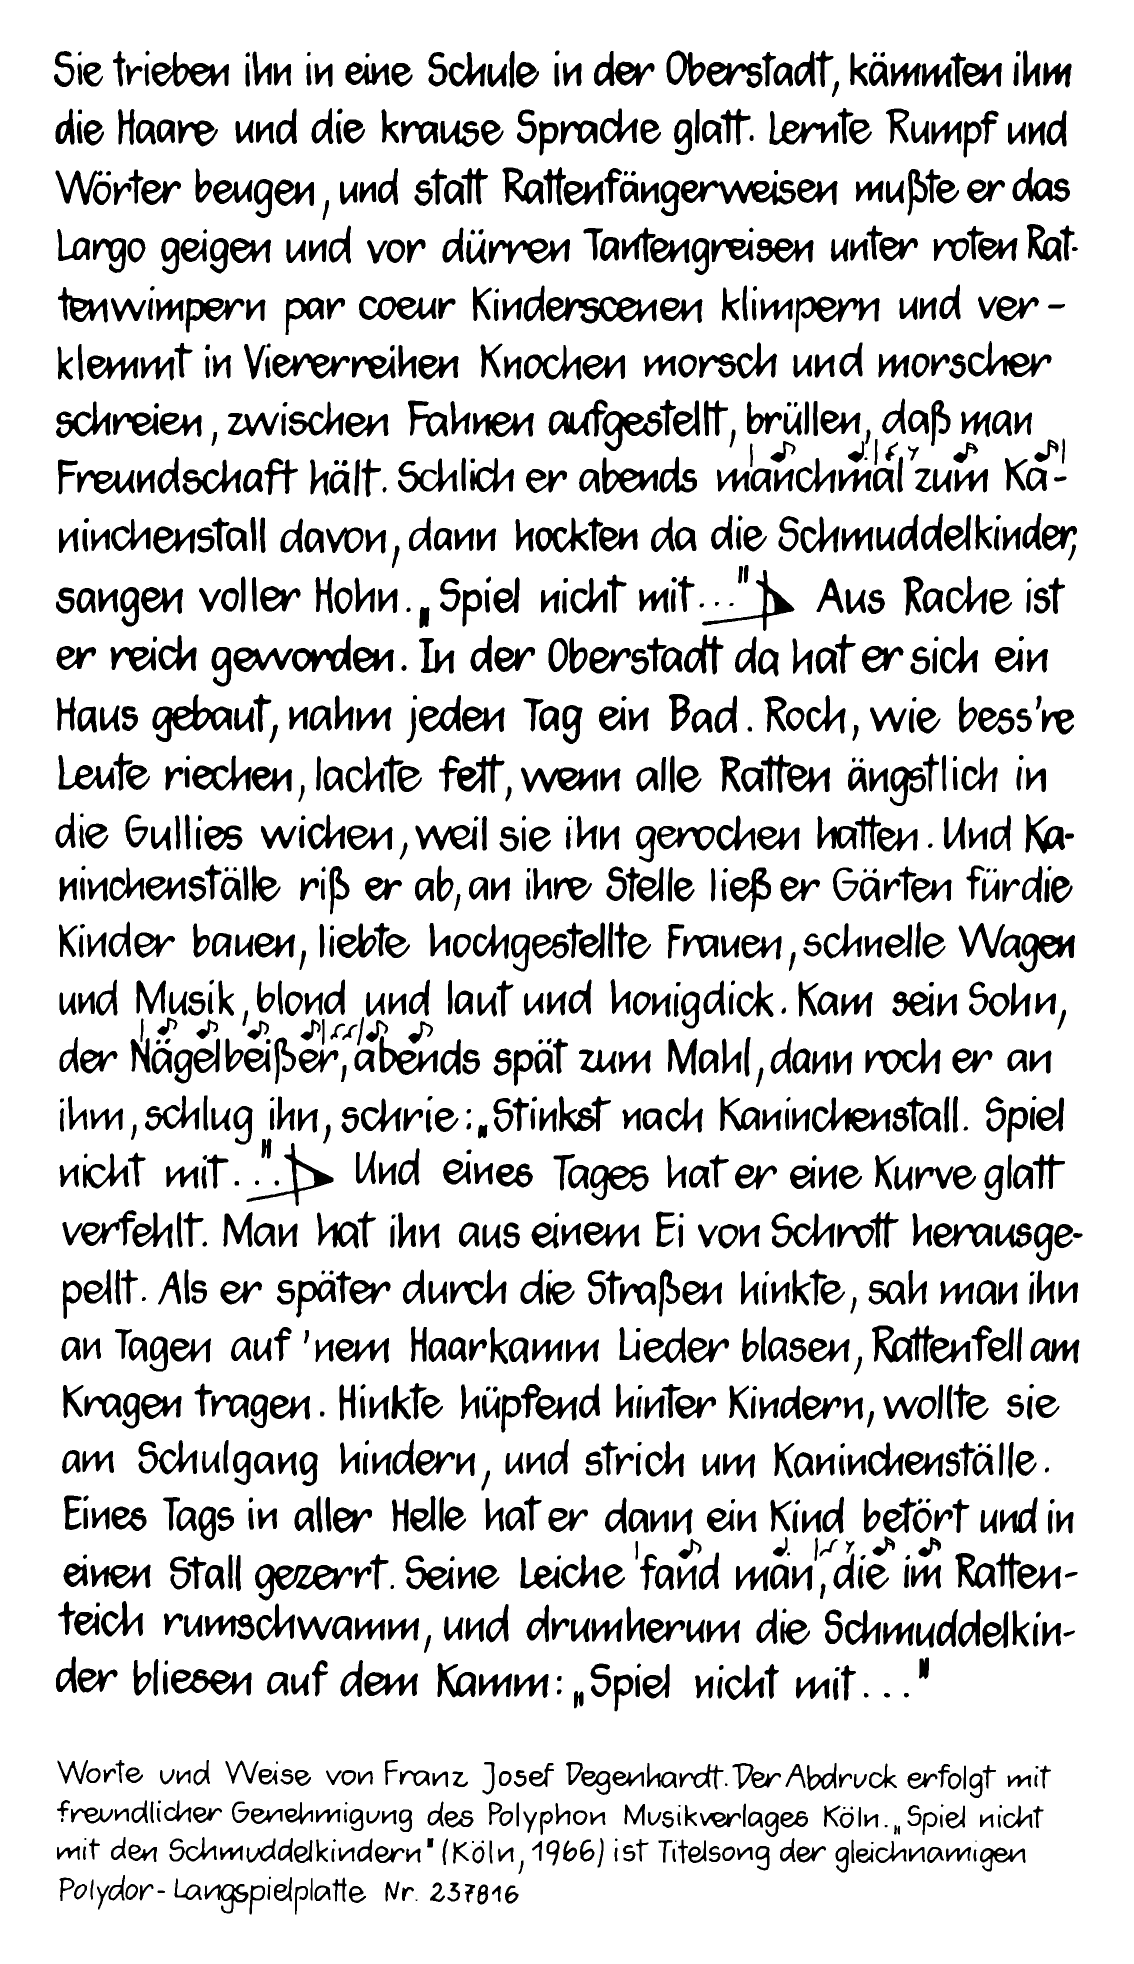 Sie trieben ihn in eine Schule in der Oberstadt, kämmten ihm
die Haare und die krause Sprache glatt. Lernte Rumpf und
Wörter beugen, und statt Rattenfängerweisen mußte er das
Largo geigen und vor dürren Tantengreisen unter roten Rat-
tenwimpern par coeur Kinderscenen klimpern und ver-
klemmt in Viererreihen Knochen morsch und morscher
schreien, zwischen Fahnen aufgestellt, brüllen, daß man
Freundschaft hält. Schlich er abends manchmal zum Ka-
ninchenstall davon, dann hockten da die Schmuddelkinder,
sangen voller Hohn. „Spiel nicht mit..." Aus Rache ist
er reich geworden. In der Oberstadt da hat er sich ein
Haus gebaut, nahm jeden Tag ein Bad. Roch, wie bess're
Leute riechen, lachte fett, wenn alle Ratten ängstlich in
die Gullies wichen, weil sie ihn gerochen hatten. Und Ka-
ninchenställe riß er ab, an ihre Stelle ließ er Gärten für die
Kinder bauen, liebte hochgestellte Frauen, schnelle Wagen
und Musik, blond und laut und honigdick. Kam sein Sohn,
der Nägelbeißer, abends spät zum Mahl, dann roch er an
ihm, schlug ihn, schrie: „Stinkst nach Kaninchenstall. Spiel
nicht mit..." Und eines Tages hat er eine Kurve glatt
verfehlt. Man hat ihn aus einem Ei von Schrott herausge-
pellt. Als er später durch die Straßen hinkte, sah man ihn
an Tagen auf 'nem Haarkamm Lieder blasen, Rattenfell am
Kragen tragen. Hinkte hüpfend hinter Kindern, wollte sie
am Schulgang hindern, und strich um Kaninchenställe.
Eines Tags in aller Helle hat er dann ein Kind betört und in
einen Stall gezerrt. Seine Leiche fand man, die im Ratten-
teich rumschwamm, und drumherum die Schmuddelkin-
der bliesen auf dem Kamm: „Spiel nicht mit..."
Worte und Weise von Franz Josef Degenhardt. Der Abdruck erfolgt mit
freundlicher Genehmigung des Polyphon Musikverlages Köln. „Spiel nicht
mit den Schmuddelkindern" (Köln, 1966) ist Titelsong der gleichnamigen
Polydor-Langspielplatte Nr. 237816